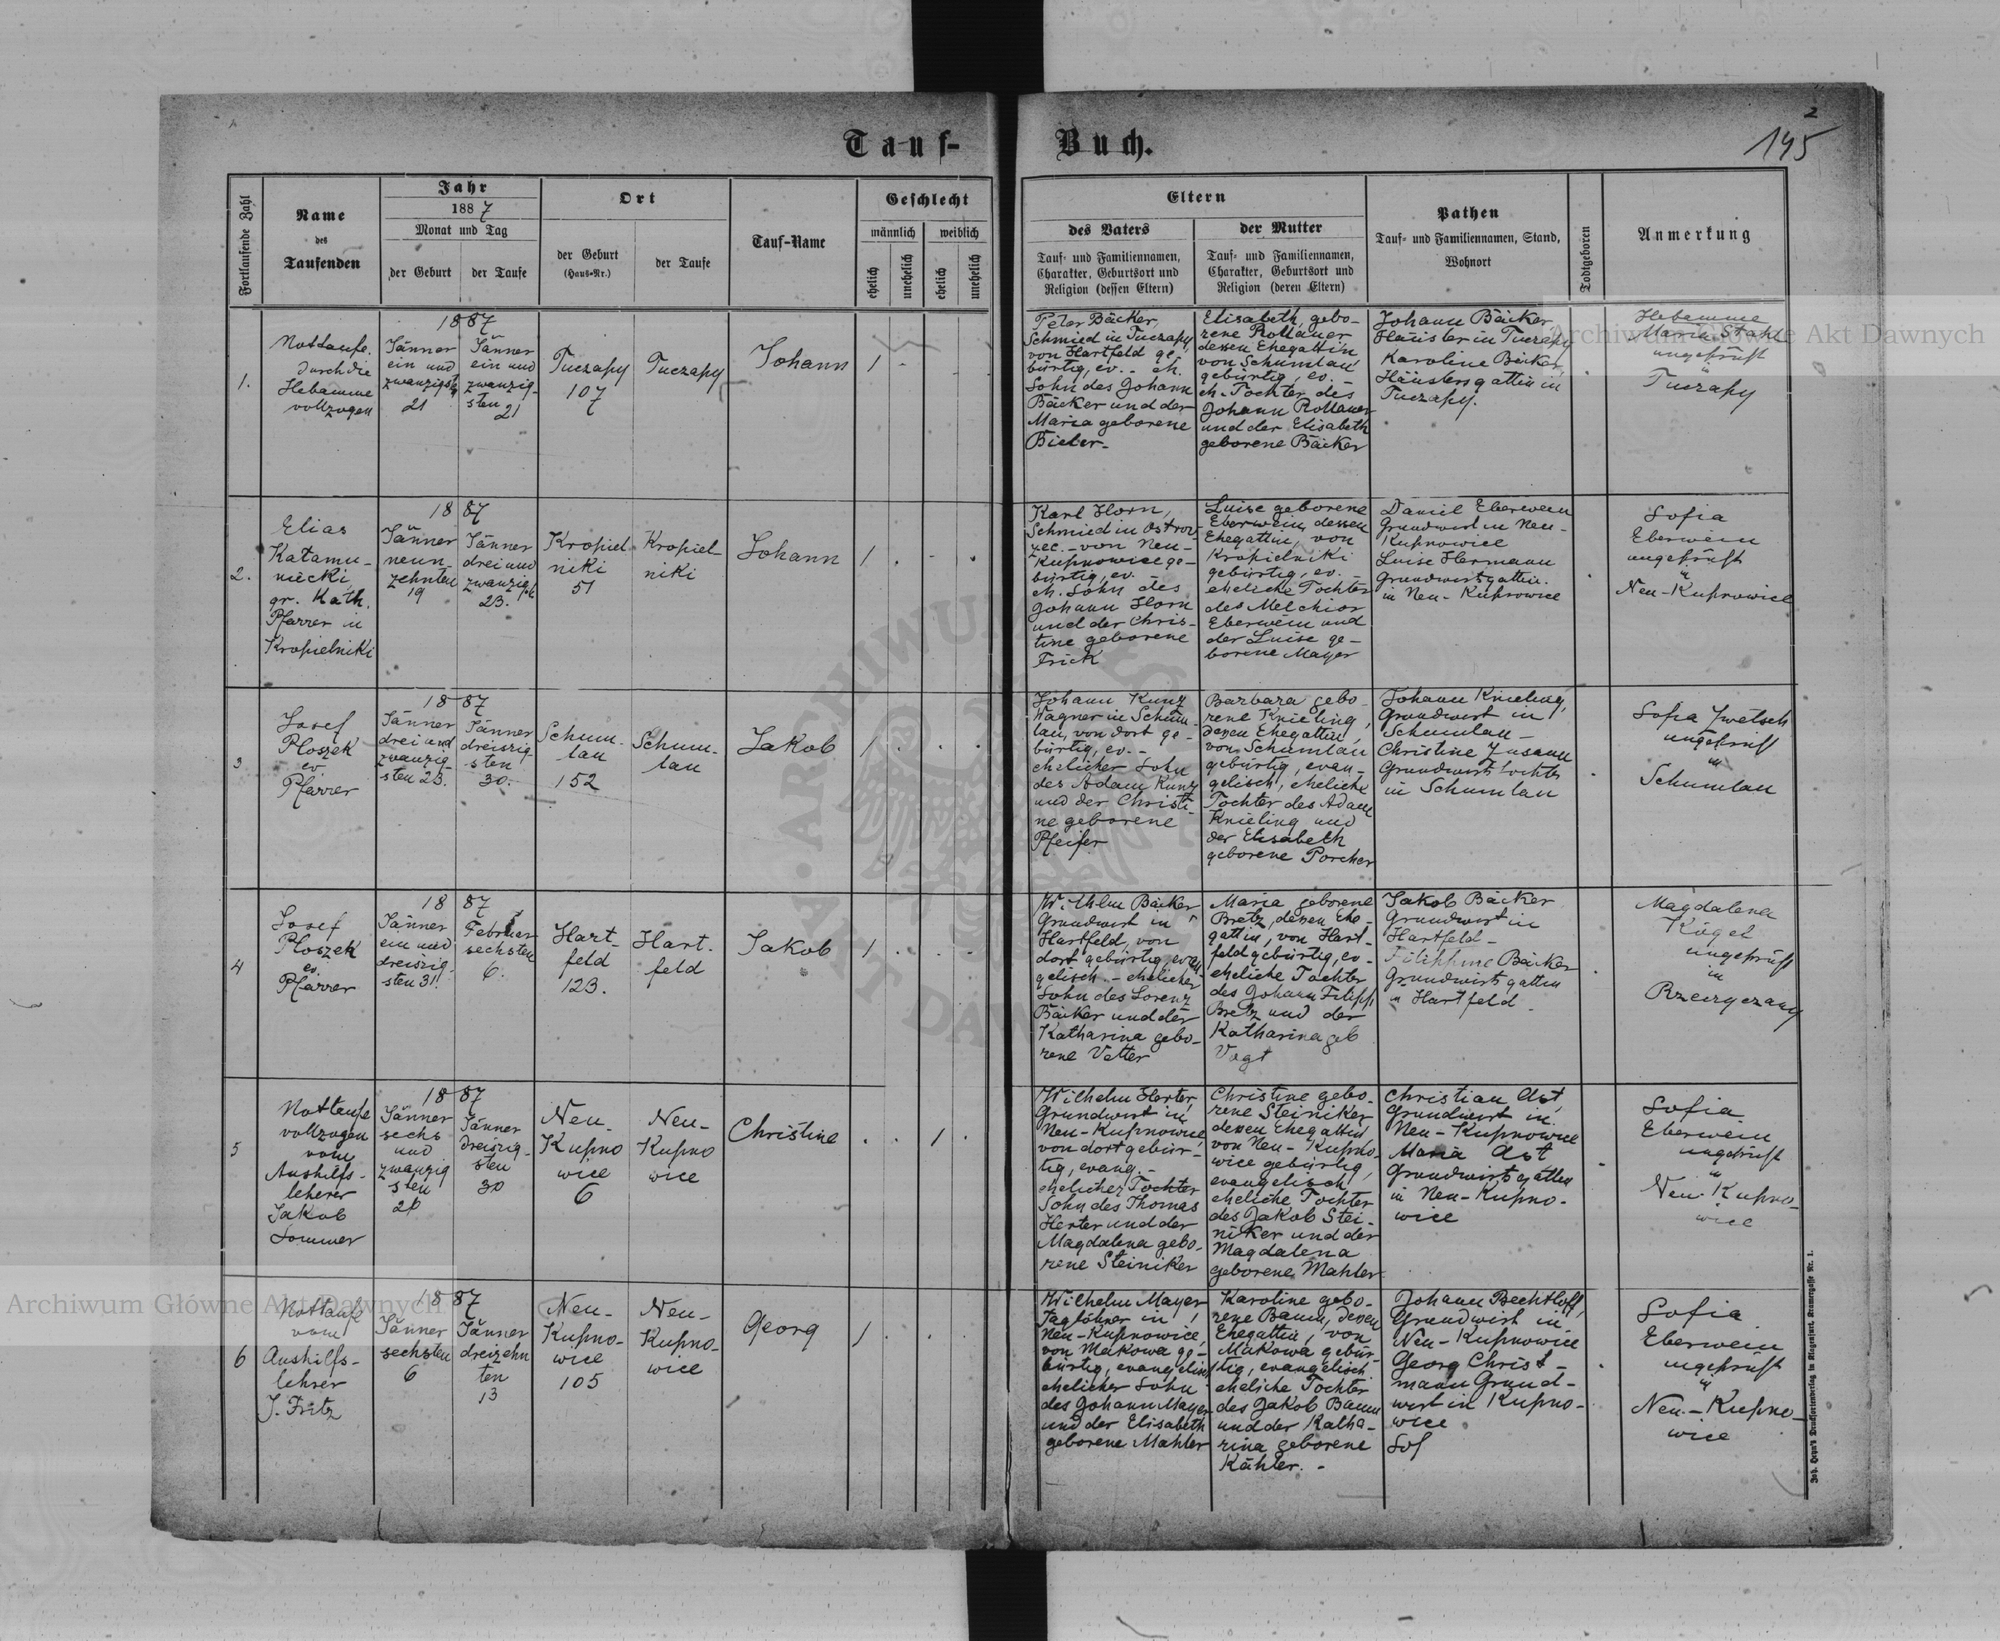 Tauf-Buch.
2
145
Fortlaufende Zahl
Name
des
Taufenden
Jahr
1887
Monat und Tag
der Geburt
der Taufe
Ort
der Geburt
(Haus-Nr.)
der Taufe
Tauf-Name
Geschlecht
männlich
weiblich
ehelich
unehelich
ehelich
unehelich
Eltern
des Vaters
Tauf- und Familiennamen,
Charakter, Geburtsort und
Religion (dessen Eltern)
der Mutter
Tauf- und Familiennamen,
Charakter, Geburtsort und
Religion (deren Eltern)
Pathen
Tauf- und Familiennamen, Stand,
Wohnort
Todtgeboren
Anmerkung
1.
Nottaufe.
durch die
Hebamme
vollzogen
1887
Jänner
ein und
zwanzigsten
21
Jänner
ein und
zwanzig-
sten
21
Tuczapy
107
Tuczapy
Johann
1
Peter Bäcker,
Schmied in Tuczapy,
von Hartfeld ge-
bürtig, ev. - eh.
Sohn des Johann
Bäcker und der
Maria geborene
Bieber-
Elisabeth, gebo-
rene Rollauer
dessen Ehegattin
von Schumlau
gebürtig, ev. -
eh. Tochter des
Johann Rollauer
und der Elisabeth
geborene Bäcker
Johann Bäcker
Häusler in Tuczapy
Karoline Bäcker,
Häuslersgattin in
Tuczapy.
Hebamme
Maria Stahl
ungeprüft
in
Tuczapy
2.
Elias
Katamu-
niecki
gr. Kath.
Pfarrer in
Kropielniki
1887
Jänner
neun-
zehnten
19
Jänner
drei und
zwanzigst
23.
Kropiel-
niki
51
Kropiel-
niki
Johann
1
Karl Horn,
Schmied in Ostrow-
zec. - von Neu-
Kupnowice ge-
bürtig, ev.
eh. Sohn des
Johann Horn
und der Chris-
tine geborene
Frick
Luise geborene
Eberwein, dessen
Ehegattin, von
Kropielniki
gebürtig, ev. -
eheliche Tochter
des Melchior
Eberwein und
der Luise ge-
borene Mayer
Daniel Eberwein
Grundwirt in Neu-
Kupnowice
Luise Hermann
Grundwirtsgattin.
in Neu-Kupnowice
Sofia
Eberwein
ungeprüft
in
Neu-Kupnowice
3
Josef
Ploszek
ev
Pfarrer
1887
Jänner
drei und
zwanzig-
sten 23.
Jänner
dreiszig-
sten
30.
Schum-
lau
152
Schum-
lau
Jakob
1
Johann Kunz
Wagner in Schum-
lau, von dort ge-
bürtig, ev. -
ehelicher Sohn
des Adam Kunz
und der Christi-
ne geborene
Pfeifer
Barbara gebo-
rene Knieling,
dessen Ehegattin,
von Schumlau
gebürtig, evan-
gelisch, eheliche
Tochter des Adam
Knieling und
der Elisabeth
geborene Porcher
Johann Knieling,
Grundwirt in
Schumlau-
Christine
Grundwirtstochter
in Schumlau
Sofia Zwetsch
ungeprüft
in
Schumlau
4
Josef
Ploszek
ev.
Pfarrer
1887
Jänner
ein und
dreiszig-
sten 31.
Februar
sechsten
6.
Hart-
feld
123.
Hart-
feld
Jakob
1
Wilhlm Bäcker
Grundwirt in
Hartfeld, von
dort gebürtig, evan
gelisch - ehelicher
Sohn des Lorenz
Bäcker und der
Katharina gebo-
rene Vetter
Maria geborene
Bretz, dessen Ehe-
gattin, von Hart-
feld gebürtig, ev-
eheliche Tochter
des Johann Filipp
Bretz und der
Katharina geb
Vogt
Jakob Bäcker
Grundwirt in
Hartfeld-
Filippine Bäcker
Grundwirtsgattin
in Hartfeld-
Magdalena
Kugel
ungeprüft
in
5
Nottaufe
vollzogen
vom
Aushilfs-
leherer
Jakob
Sommer
1887
Jänner
sechs
und
zwanzig
sten
26
Jänner
dreiszig-
sten
30
Neu-
Kupno
wice
6
Neu-
Kupno
wice
Christine
1
Wilhelm Herter,
Grundwirt in
Neu-Kupnowice
von dort gebür-
tig, evang. -
ehelicher Tochter
Sohn des Thomas
Herter und der
Magdalena gebo-
rene Steiniker
Christine gebo-
rene Steiniker
dessen Ehegattin
von Neu-Kupno-
wice gebürtig,
evangelisch
eheliche Tochter
des Jakob Stei-
niker und der
Magdalena
geborene Mahler
Christian Ast,
Grundwirt in
Neu-Kupnowice
Maria Ast
Grundwirtsgattin
in Neu-Kupno-
wice
Sofia
Eberwein
ungeprüft
in
Neu-Kupno-
wice
6
Nottaufe
vom
Aushilfs-
lehrer
J. Fritz
1887
Jänner
sechsten
6
Jänner
dreizehn
ten
13
Neu-
Kupno-
wice
105
Neu-
Kupno-
wice
Georg
1
Wilhelm Mayer
Taglöhner in
Neu-Kupnowice,
von Makowa ge-
bürtig, evangelisch
ehelicher Sohn
des Johann Mayer
und der Elisabeth
geborene Mahler
Karoline gebo-
rene Baum, dessen
Ehegattin, von
Makowa gebür-
tig, evangelisch
eheliche Tochter
des Jakob Baum
und der Katha-
rina geborene
Kähler. -
Johann Bechtloff,
Grundwirt in
Neu-Kupnowice
Georg Christ-
mann Grund-
wirt in Kupno-
wice
Sof
Sofia
Eberwein
ungeprüft
in
Neu-Kupno-
wice
Joh. Heyn's Drucksortenverlag in Klagenfurt, Kramergasse Nr. 1.
Archiwum Główne Akt Dawnych
Archiwum Główne Akt Dawnych